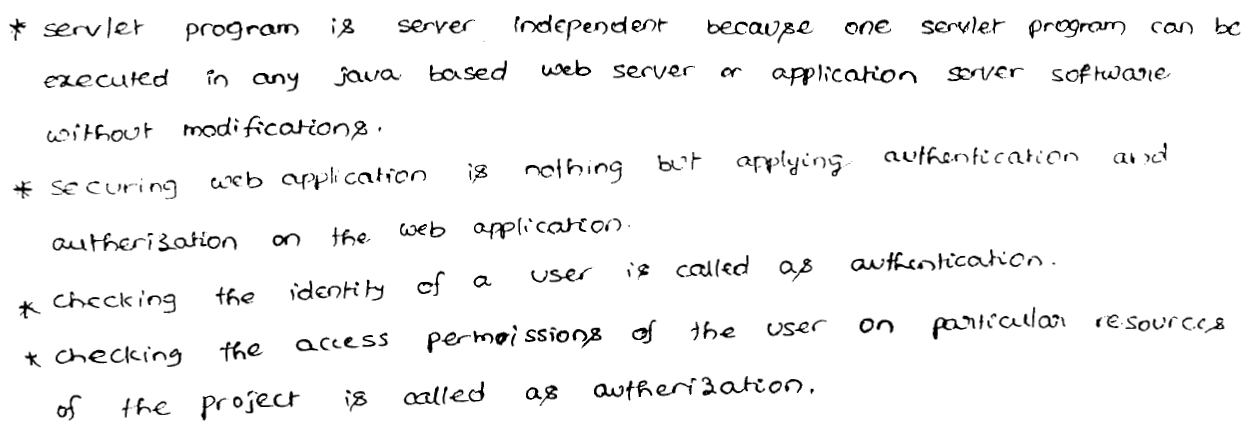 * servlet program is server independent because one servlet program can be
executed in any java based web server or application server software
without modifications.
* securing web application is nothing but applying authentication and
autherization on the web application.
* checking the identity of a user is called as authentication.
* checking the access permissions of the user on particular resources
of the project is called as autherization.